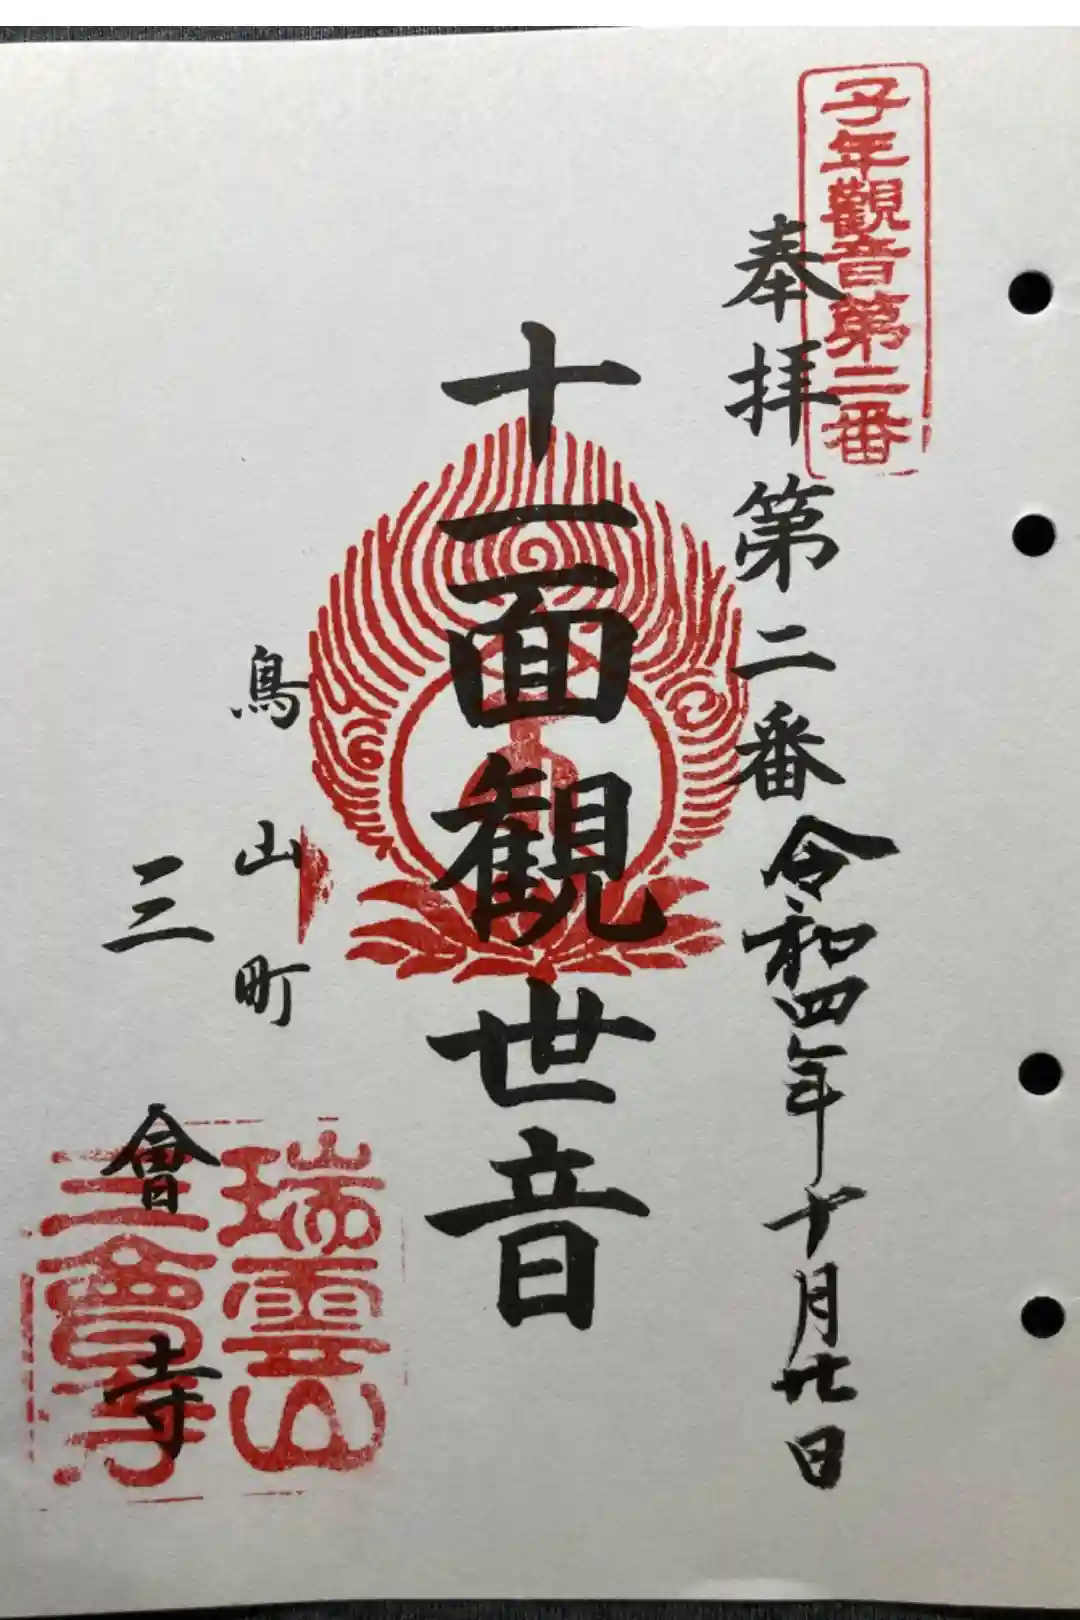 子年觀音第二番
奉拝第二番令和四年十月廿日
十一面観世音
鳥山町
三會寺
瑞雲山
三會寺